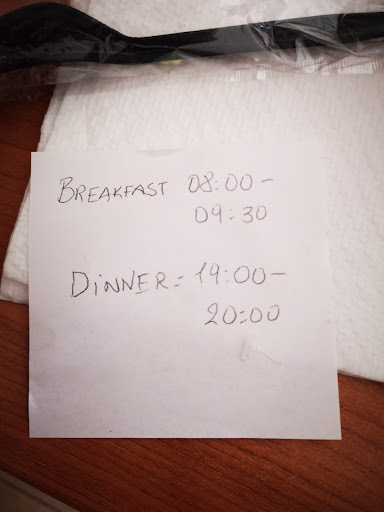 BREAKFAST 08:00-
09:30
DiNNER = 19:00-
20:00